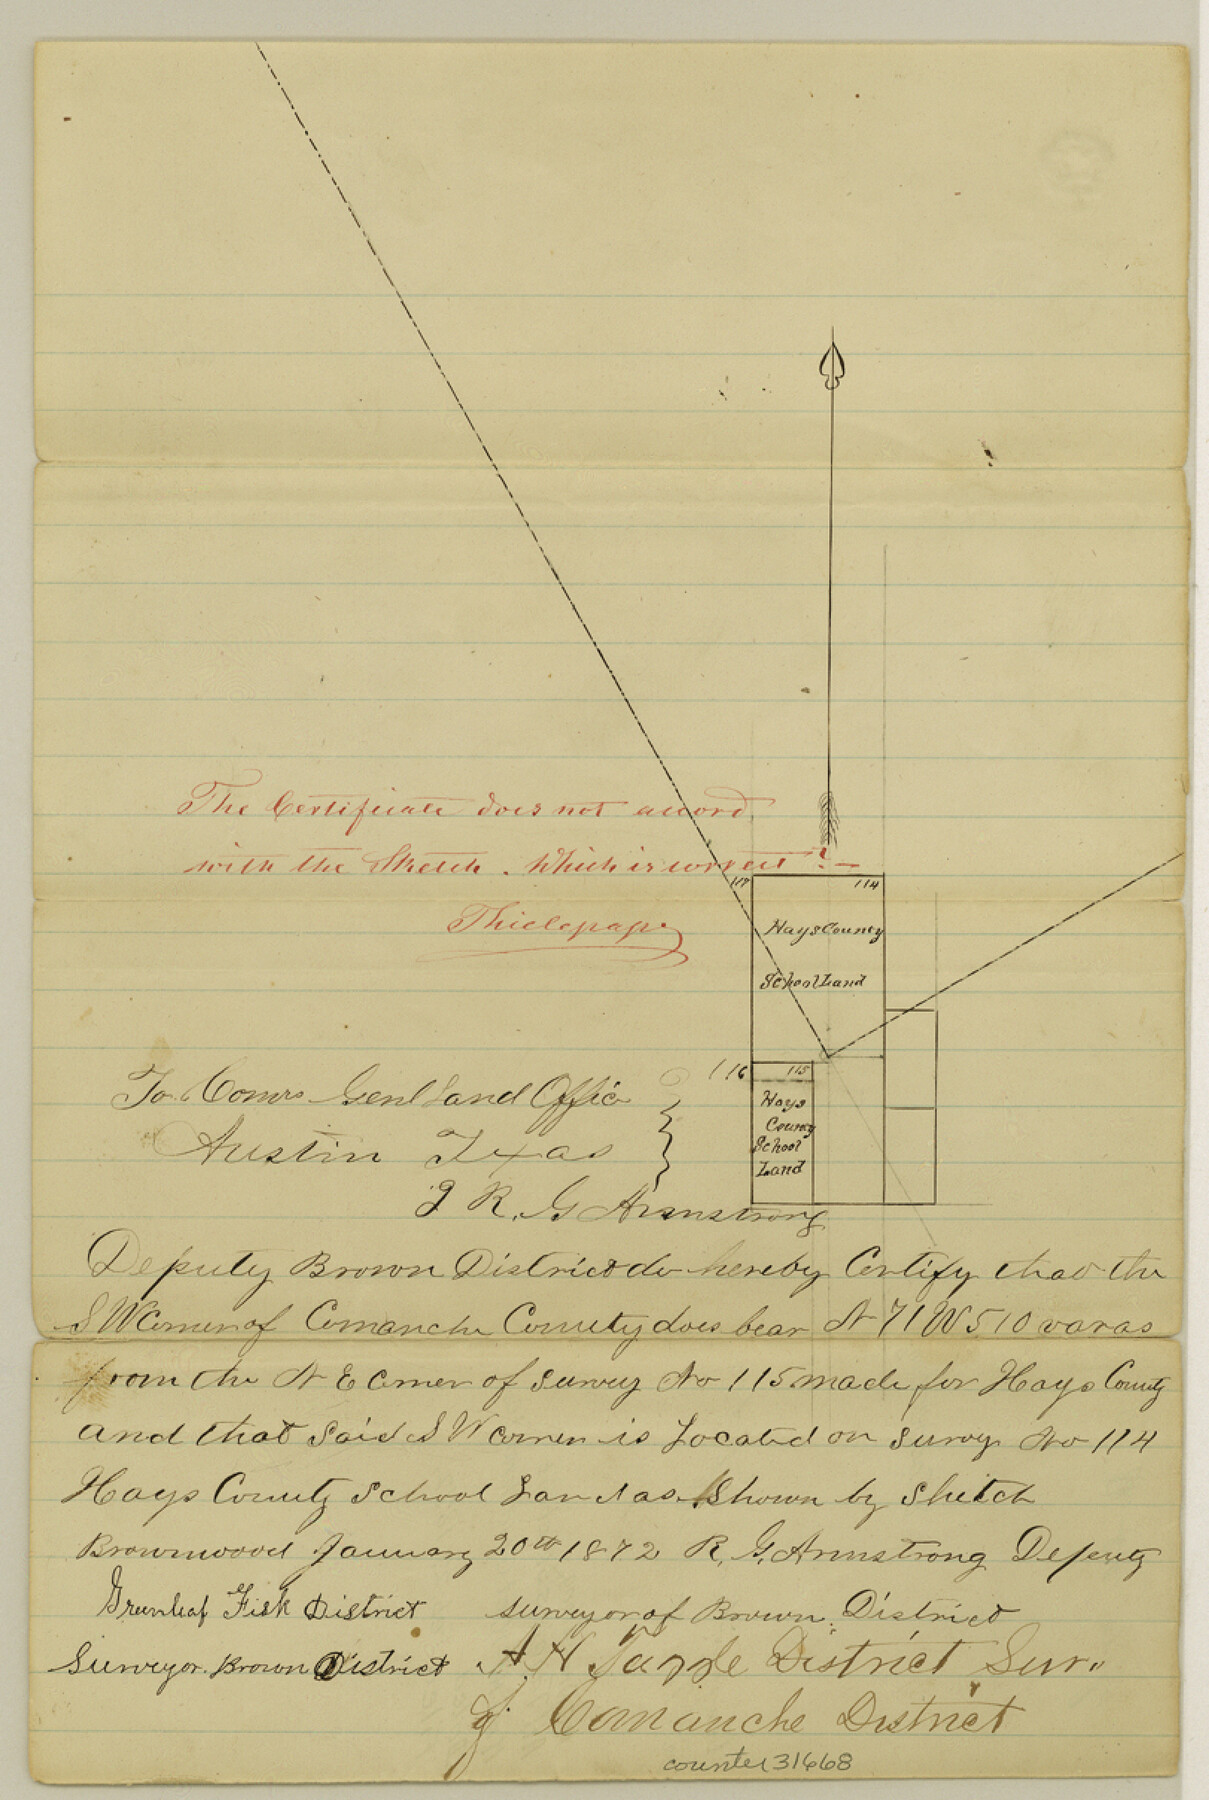 The Certificate does not accord
with the Sketch. Which is correct?
Thielepape
117 114
Hays County
School Land
116 115
Hays
County
School
Land
To Comrs Genl Land Office
Austin Texas
I R. G Armstrong
Deputy Brown District do hereby Certify that the
S W Corner of Comanche County does bear N 71 W 510 varas
from the N E Corner of Survey No 115 made for Hays County
and that said S W corner is Located on Survey No 114
Hays County School Land as Shown by Sketch
Brownwood January 20th 1872 R. G. Armstrong Deputy
Greenleaf Fisk District surveyor of Brown District
Surveyor. Brown District A. H District Sur.
of Comanche District
counter 31668